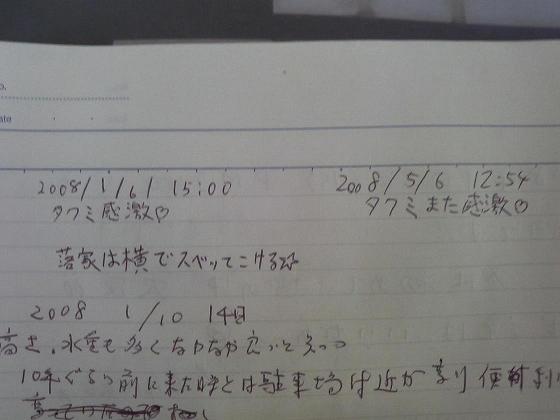 o.
ate
2008/1/6/ 15:00
タクミ感激♡
2008/5/6 12:54
タクミまた感激♡
落家は横でスベッてこける
2008 1/10 14日
高さ、水量も多くなかなか広いと
10年ぐらい前に来た時とは駐車場は近かまり便利